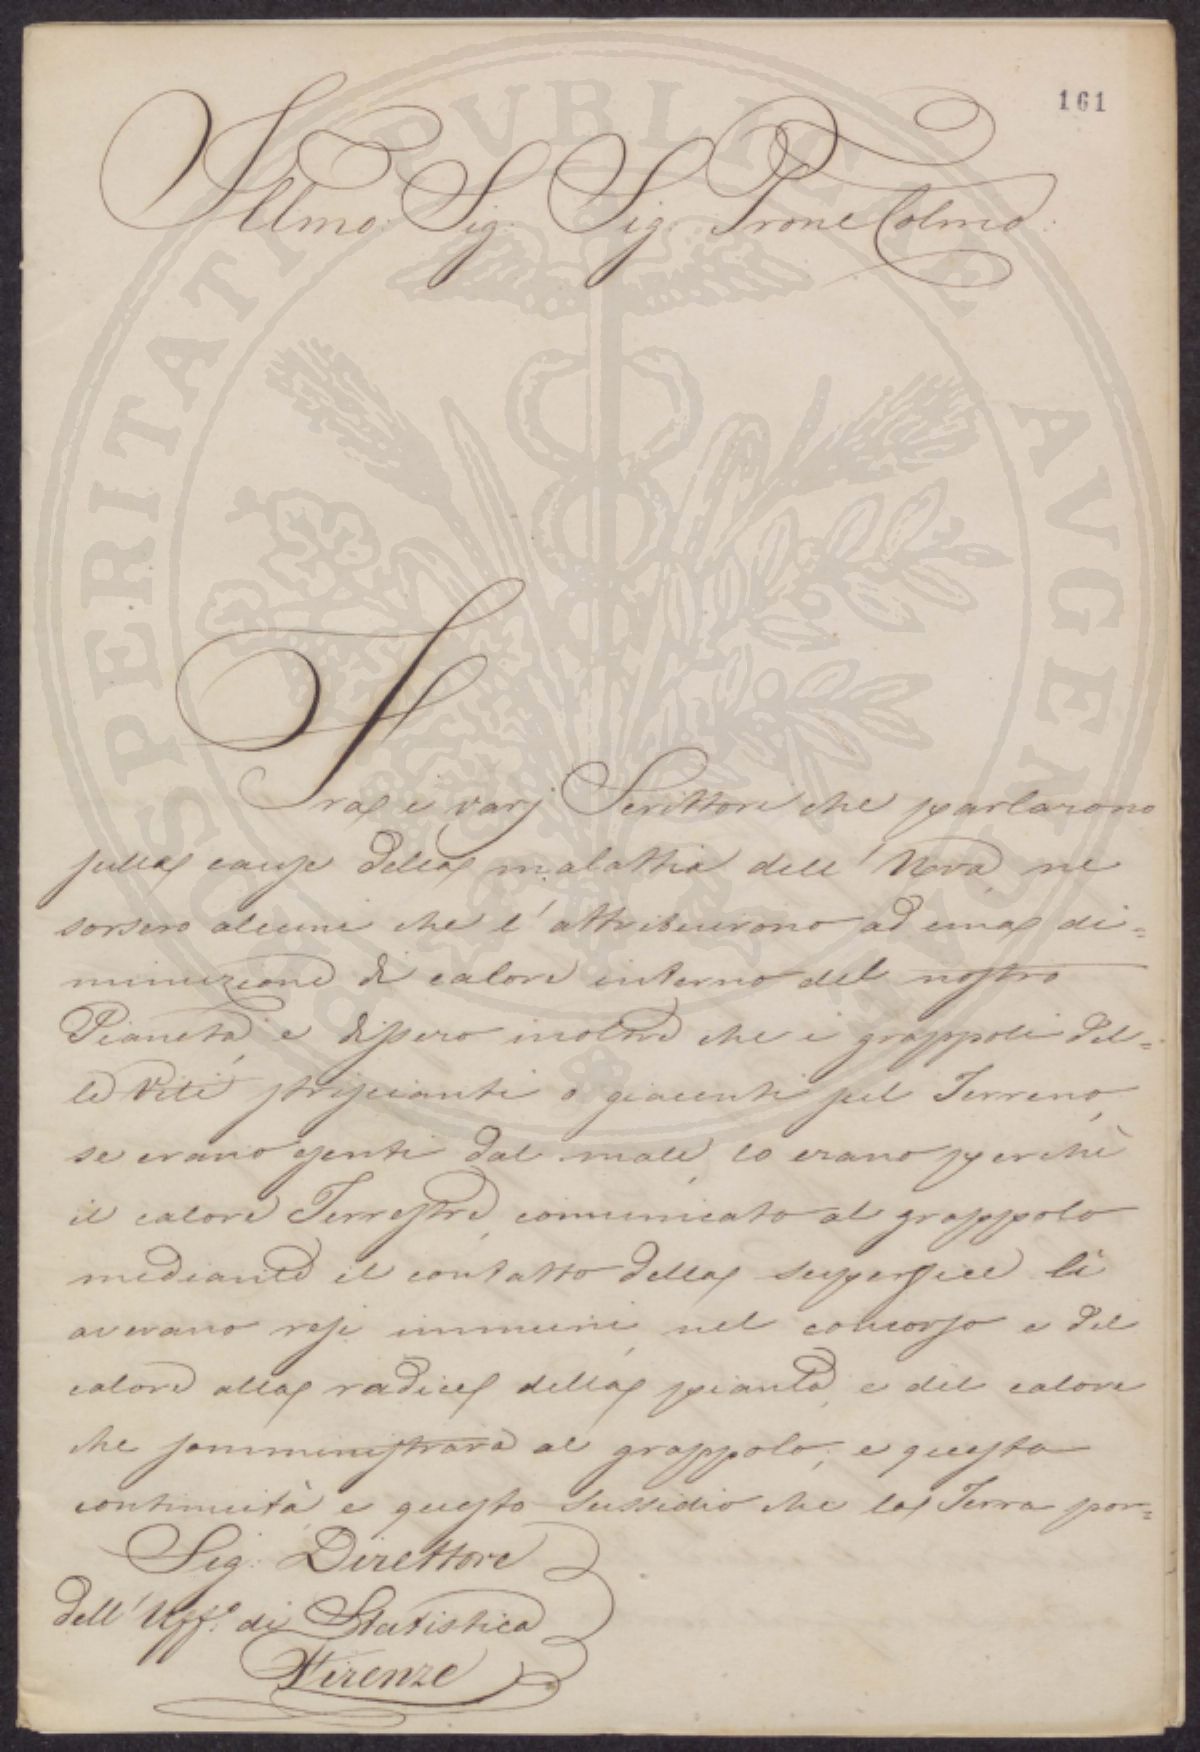 161
Illmo: Sig: Sig: Prone Colmo:
Fra i varj Scrittori che parlarono
sulla cause della malattia dell'Uva, ne
sorsero alcuni che l'attribuirono ad una di=
minuzione di calore interno del nostro
Pianeta, e dissero inoltre che i grappoli del=
le Viti striscianti o giacenti sul Terreno,
se erano esenti dal male, lo erano perchè
il calore Terrestre, comunicato al grappolo
mediante il contatto della superficie li
averano resi immuni, nel concorso e del
calore alla radice della pianta, e del calore
che somministrava al grappolo; e questa
continuità, e questo sussidio che la Terra por=
Sig: Direttore
dell'Uff.o di Statistica
Firenze
PVBLICAE
PROSPERITATI
AVGENDAE